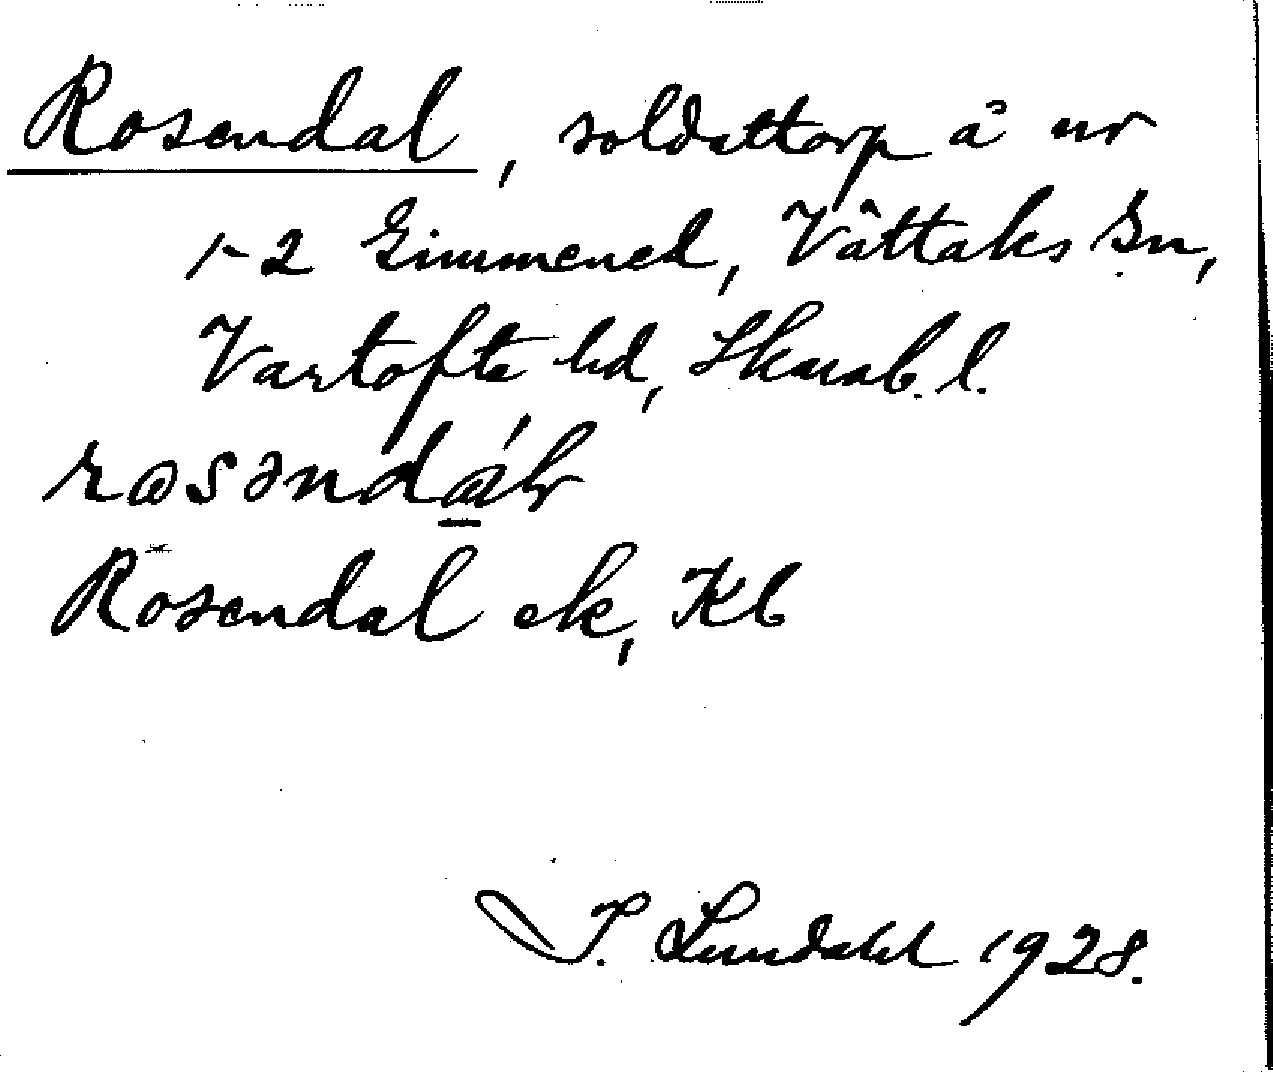 Rosendal, soldattorp å nr
1-2 Gimmened, Vättaks sn,
Vartofta hd, Skarab. l.
Rosendal ek, Kb
I. Lundahl 1928.